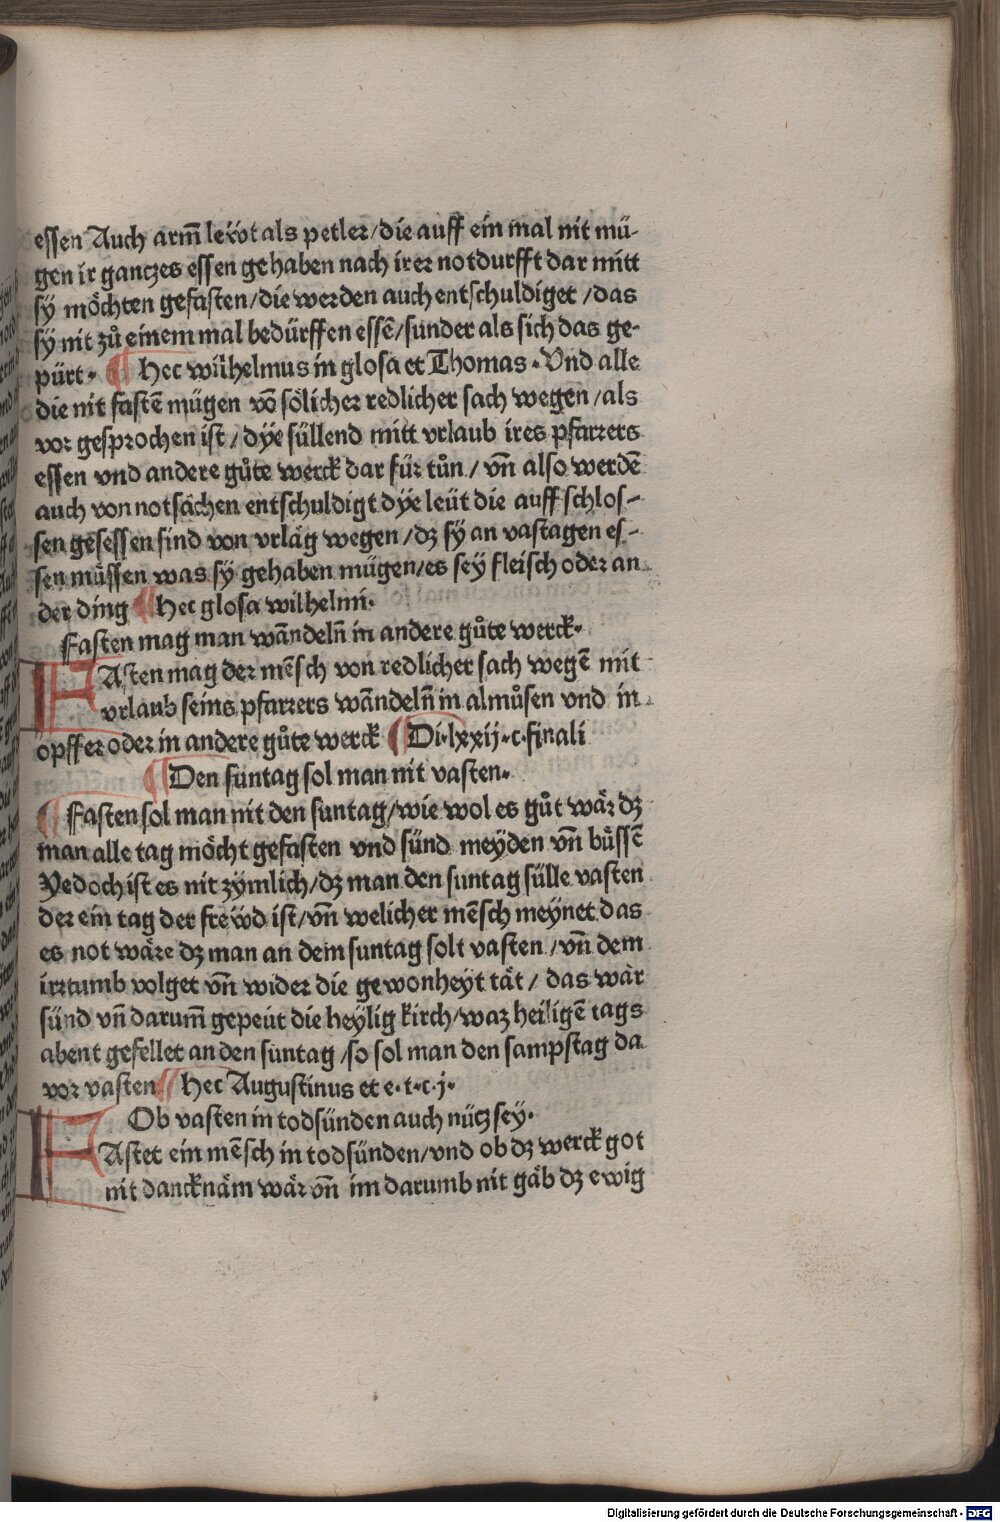 essen Auch arm̄ leẅt als petler/die auff ein mal nit mü-
gen ir gantzes essen gehaben nach irer notdurfft dar mitt
sÿ möchten gefasten/die werden auch entschuldiget /das
sÿ nit zů einem mal bedürffen essē/sunder als sich das ge-
pürt. ¶ Hec wilhelmus in glosa et Thomas. Vnd alle
die nit fastē mügen võ sölicher redlicher sach wegen/als
vor gesprochen ist/dÿe süllend mitt vrlaub ires pfarrers
essen vnd andere gůte werck dar für tůn/vñ also werdē
auch von notsächen entschuldigt dÿe leüt die auff schlos-
sen gesessen sind von vrläg wegen/dʒ sÿ an vastagen es-
sen můssen was sÿ gehaben mügen/es seÿ fleisch oder an
der ding ¶ Hec glosa wilhelmi.
Fasten mag man wãndelñ in andere gůte werck.
FAsten mag der mēsch von redlicher sach wegē mit
vrlaub seins pfarrers wãndelñ in almůsen vnd in
opffer oder in andere gůte werck ¶ Di.lxxij.c.finali
¶ Den suntag sol man nit vasten.
¶ Fasten sol man nit den suntag/wie wol es gůt wär dʒ
man alle tag möcht gefasten vnd sünd meÿden vñ bůssē
Yedoch ist es nit zymlich/dʒ man den suntag sülle vasten
der ein tag der freẅd ist/vñ welicher mēsch meynet das
es not wäre dʒ man an dem suntag solt vasten/vñ dem
irrtumb volget vñ wider die gewonheyt tät/ das wär
sünd vñ darum̄ gepeut die heÿlig kirch/waʒ heiligē tags
abent gefellet an den suntag/so sol man den sampstag da
vor vasten ¶ Hec Augustinus et e.t.c.j.
Ob vasten in todsünden auch nütz seÿ.
FAstet ein mēsch in todsünden/vnd ob dʒ werck got
nit dancknäm wär vñ im darumb nit gäb dʒ ewig
Digitalisierung gefördert durch die Deutsche Forschungsgemeinschaft - DFG